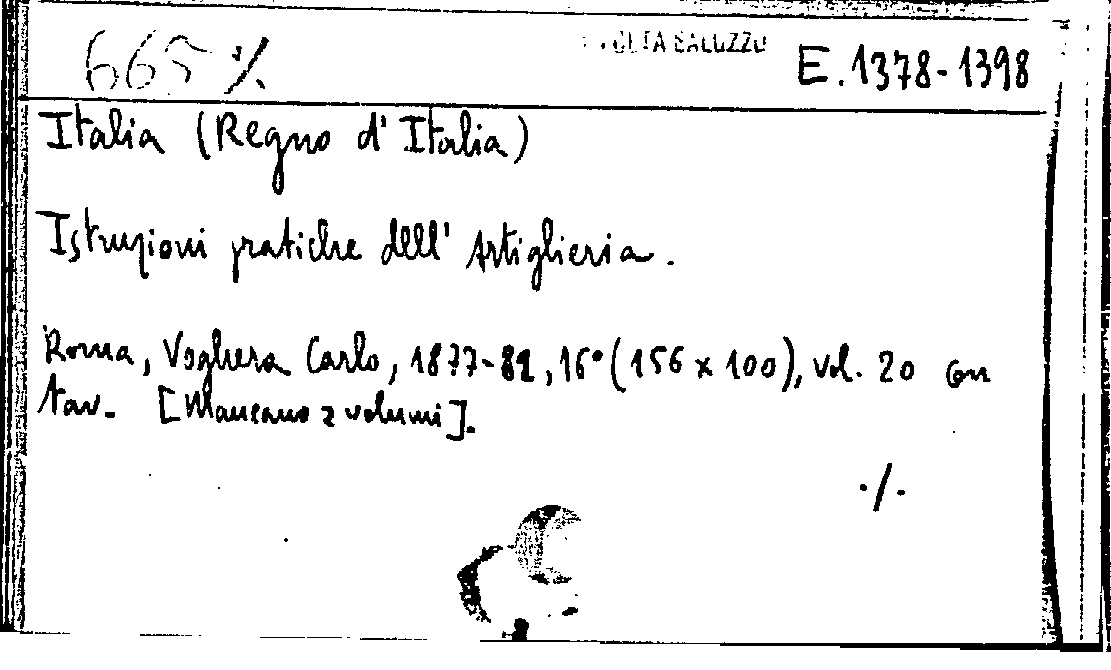 665 ·/.
SALUZZO E. 1378-1398
Italia (Regno d'Italia)
Istruzioni pratiche dell'Artiglieria.
Roma, Voghera Carlo, 1877-82, 16° (156 x 100), vol. 20 con
tav. [Mancano 2 volumi].
·/.